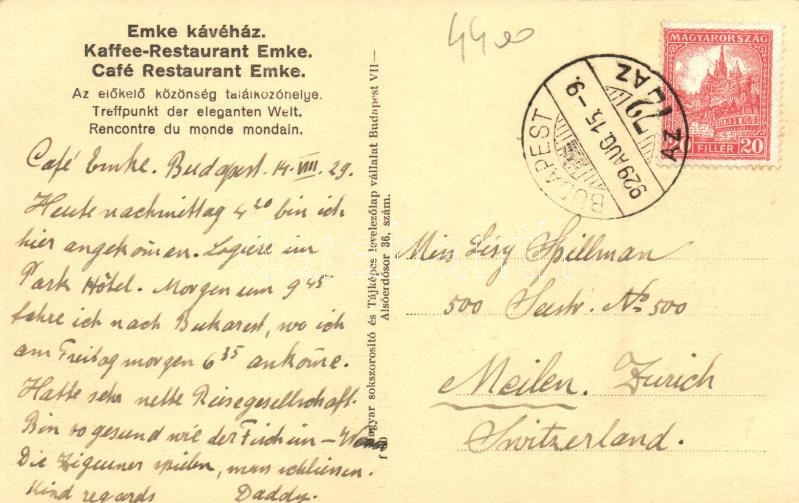 Emke kávéház.
Kaffee-Restaurant Emke.
Café Restaurant Emke.
Az előkelő közönség találkozóhelye.
Treffpunkt der eleganten Welt.
Rencontre du monde mondain.
Café Emke. Budapest. 14. VIII. 29.
Heute nachmittag 4 20 bin ich
hier angekomen. Logiere im
Park Hôtel. Morgen um 9 45
fahre ich nach Bukarest, wo ich
am Freitag morgen 6 35 ankome.
Hatte sehr nette Reisegesellschaft.
Bin so gesund wie der Fisch im -
Die Zigeuner spielen, muss schliessen.
Kind regards Daddy.
Magyar sokszorosító és Tájképes levelezőlap vállalat Budapest VII—
Alsóerdősor 36, szám.
4400
MAGYARORSZÁG
FILLÉR 20
BUDAPEST
929 AUG. 15. -9.
72
AZ AZ
Miss Lisy Spillman
500 Seestr. No 500
Meilen. Zurich
Switzerland.